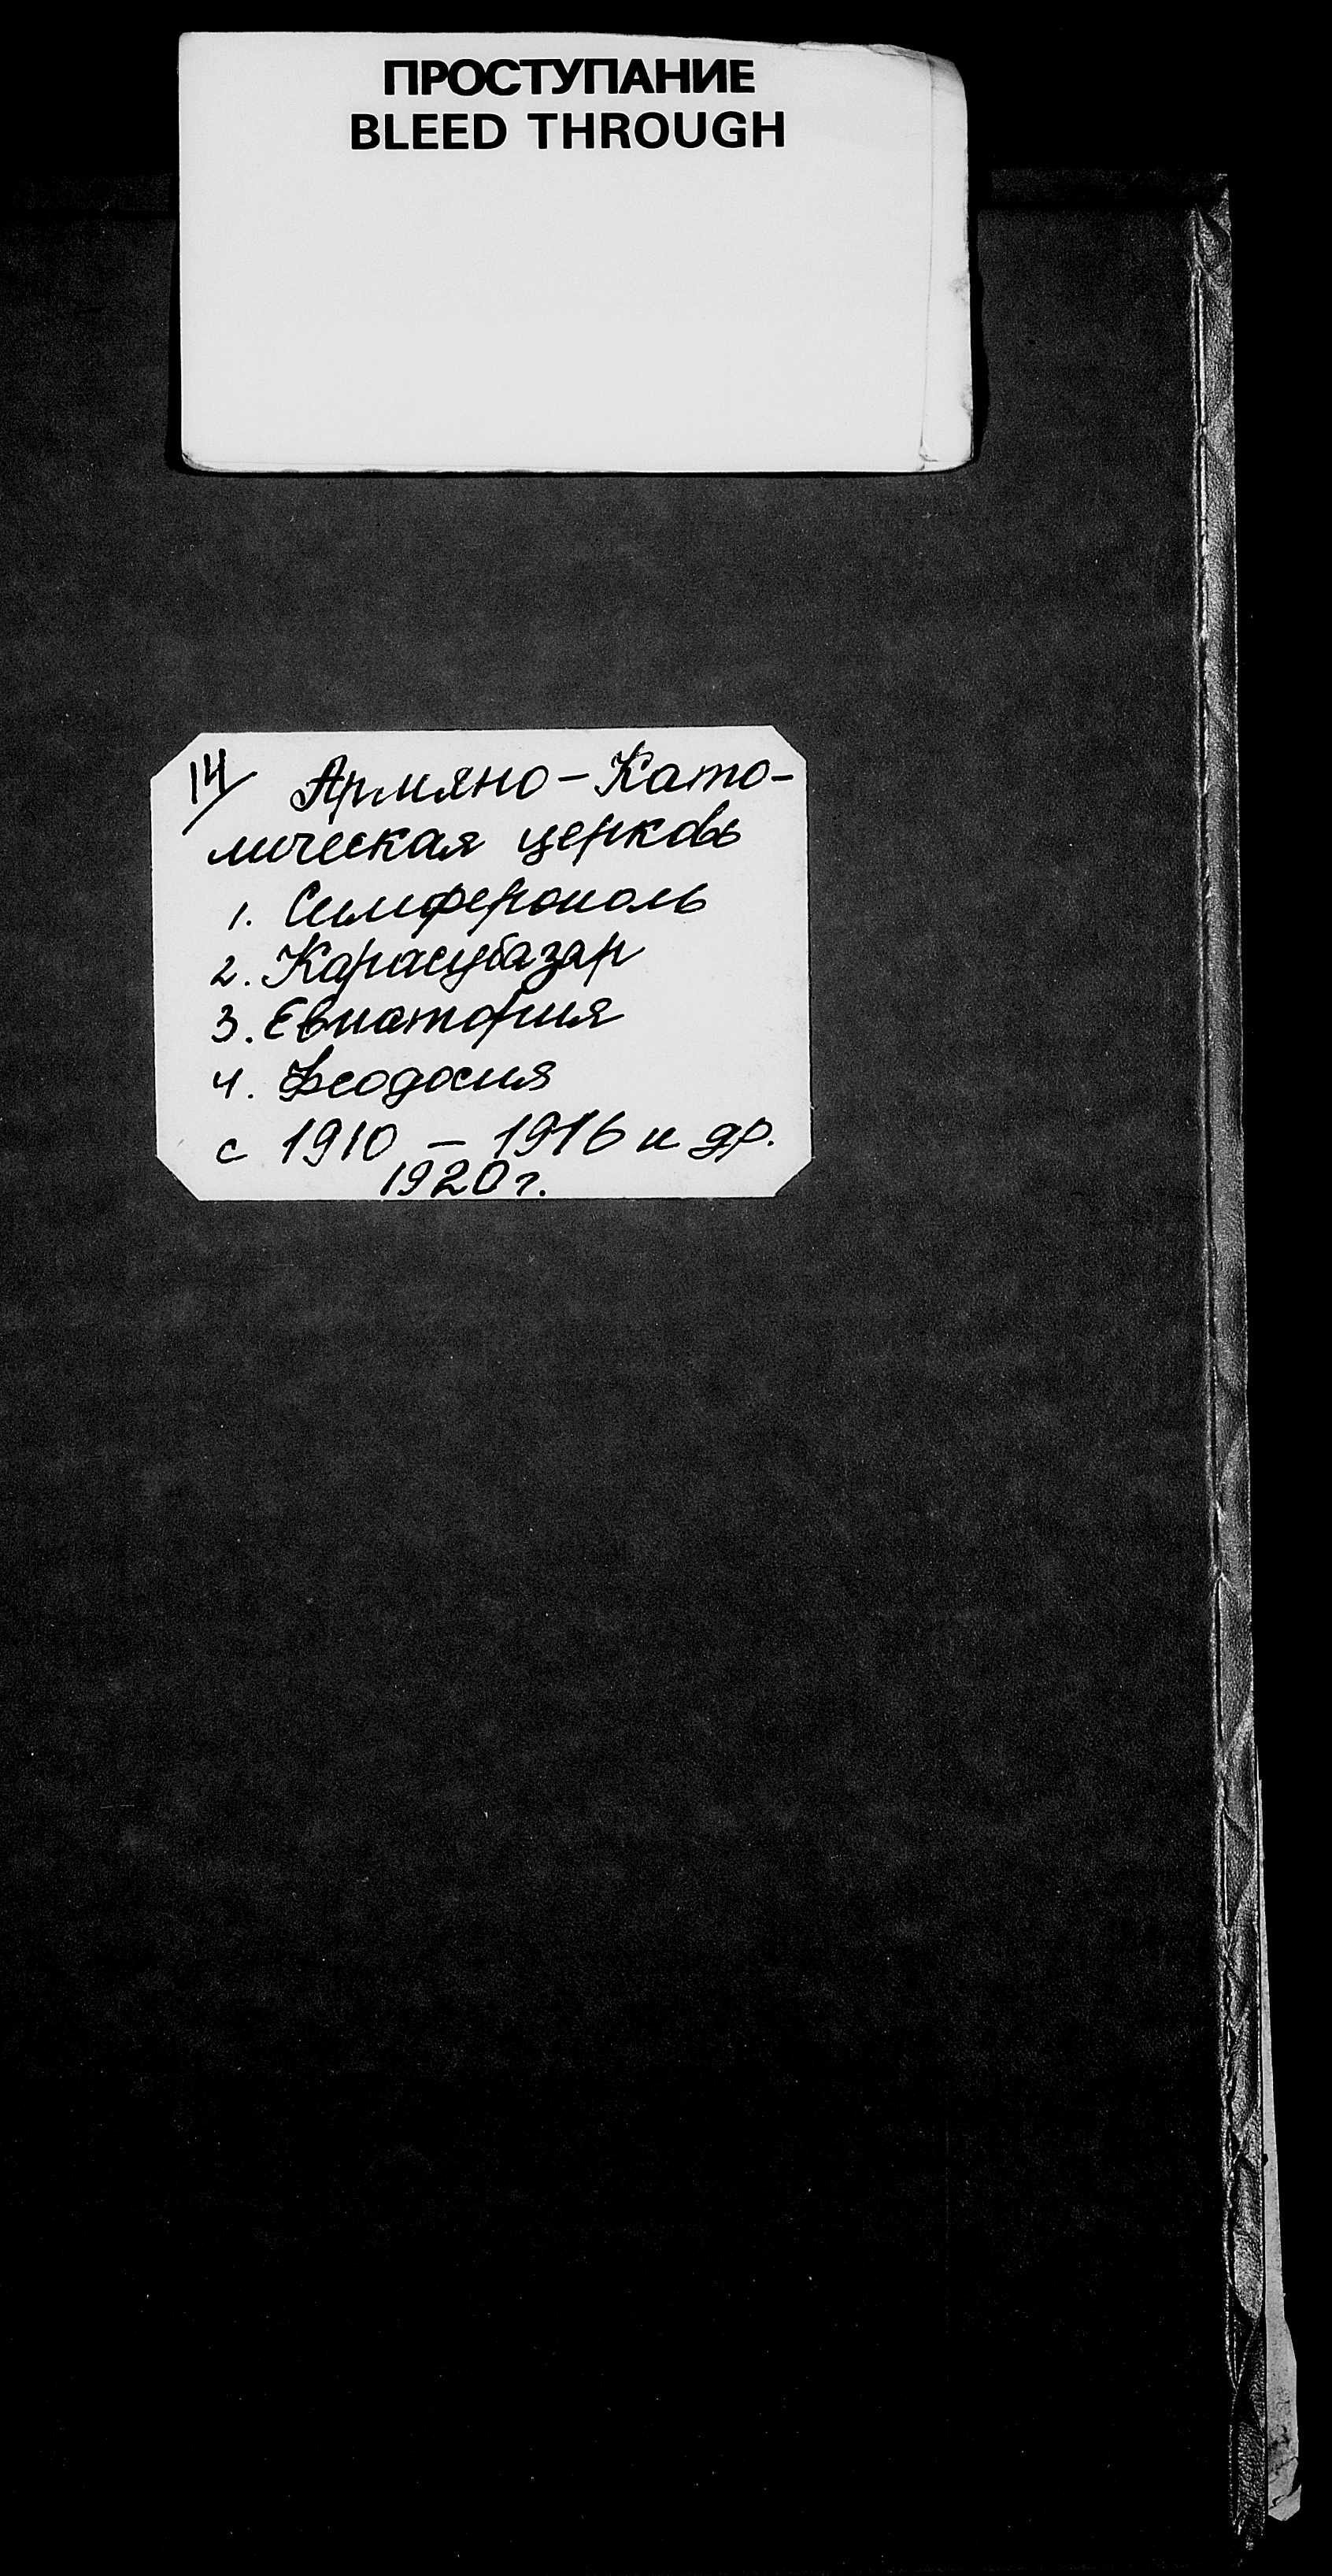 ПРОСТУПАНИЕ
BLEED THROUGH
14/ Армяно-Като-
лическая церковь
1. Симферополь
2. Карасубазар
3. Евпатория
4. Феодосия
с 1910 - 1916 и др.
1920 г.